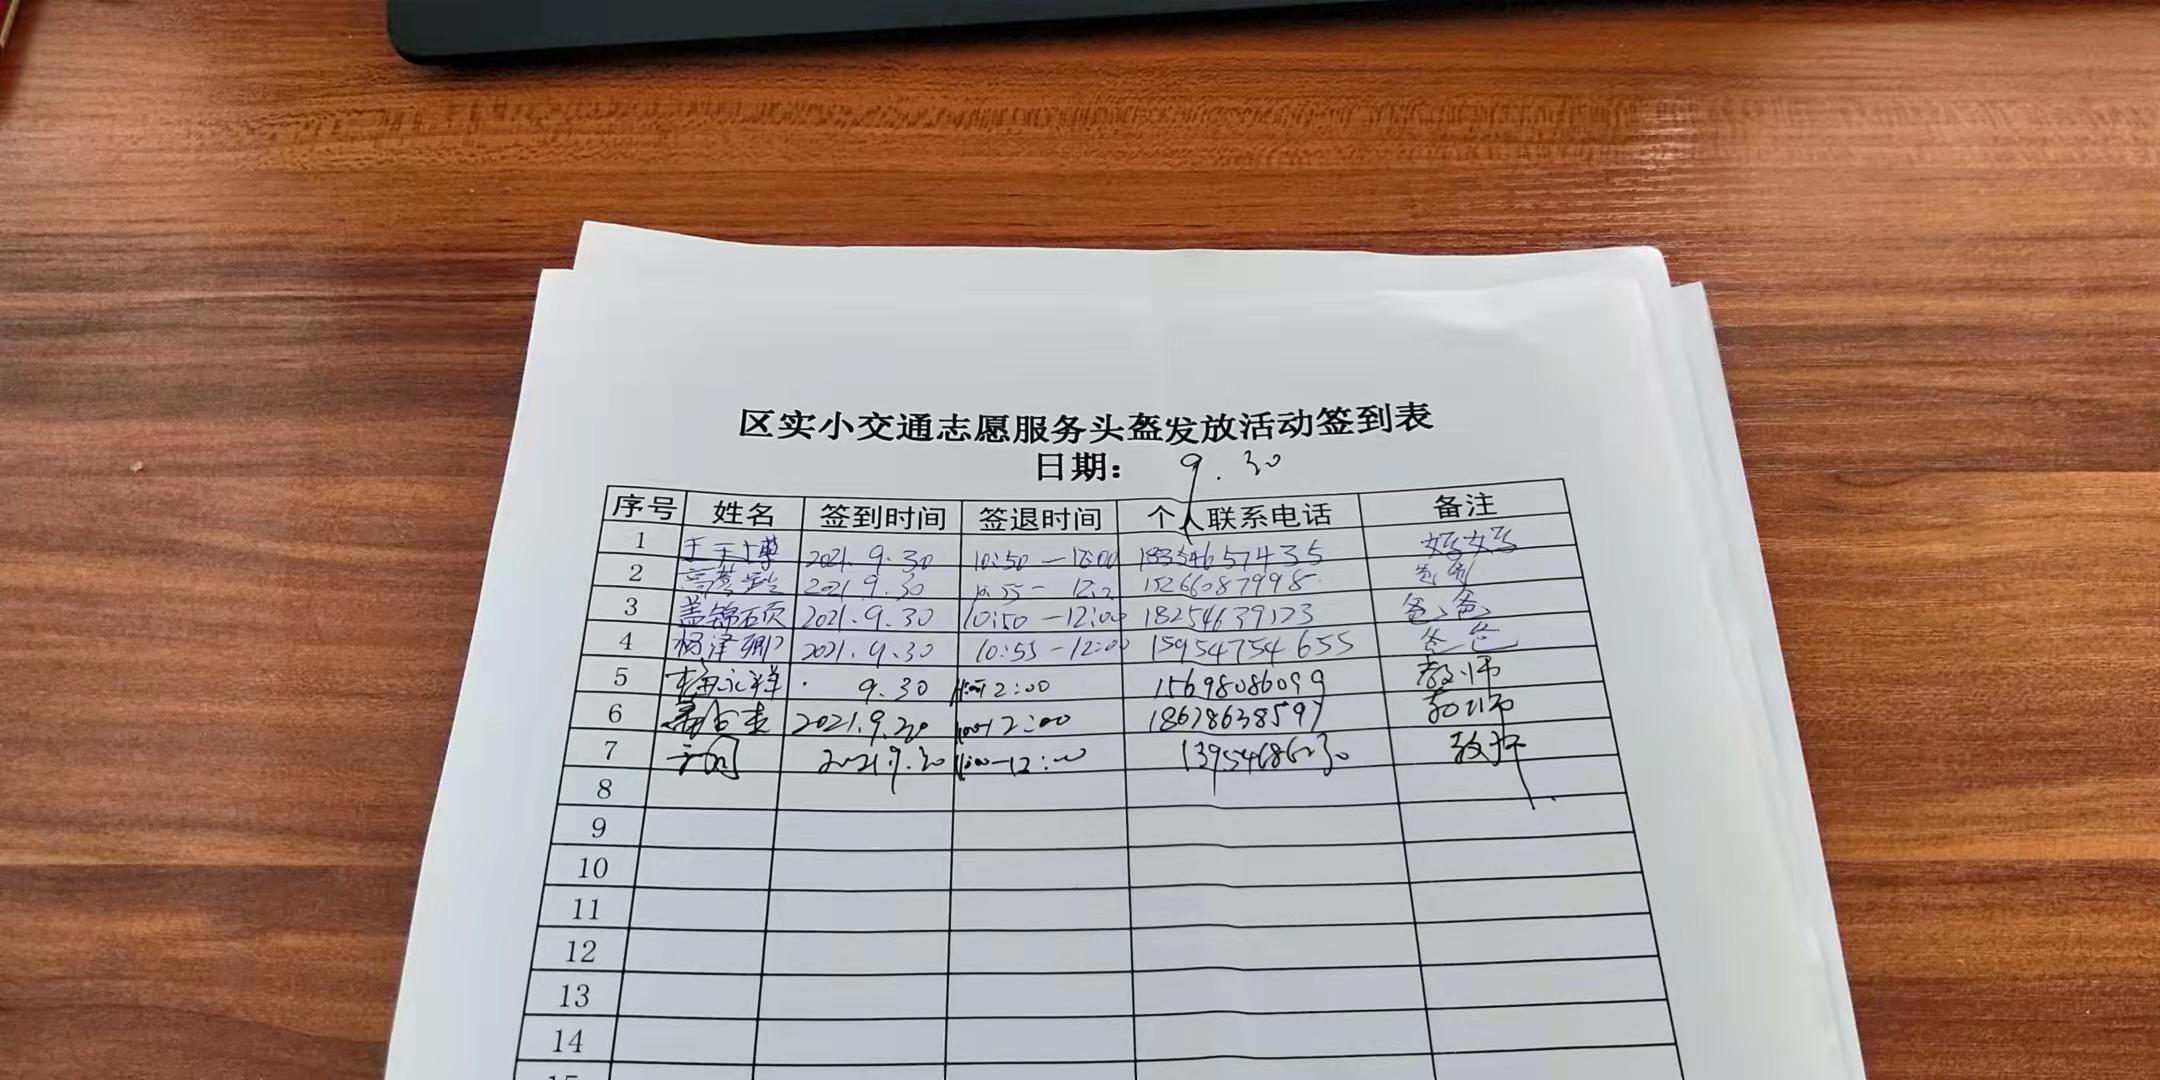 区实小交通志愿服务头盔发放活动签到表
日期： 9.30
序号 姓名 签到时间 签退时间 个人联系电话 备注
1 2021.9.30 10:50—12:00 妈妈
2 2021.9.30 15266087998
3 盖锦硕 2021.9.30 10:50—12:00 18254639123 爸爸
4 杨泽卿 2021.9.30 10:55-12:00 15954754655 爸爸
5 9.30 12:00 15698086099 教师
6 2021.9.30 12:00 18678638597 教师
7 2021.9.30 11:00-12:00 教师
8
9
10
11
12
13
14
15